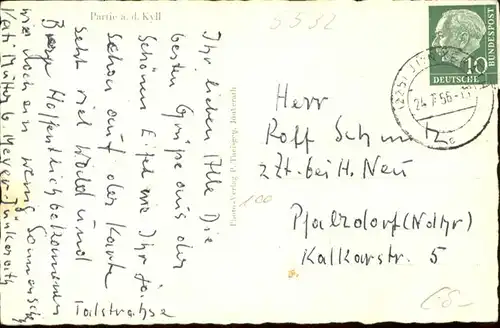 Partie a. d. Kyll
Ihr lieben Alle Die
besten Grüße aus der
schönen Eifel wie Ihr ja
schon auf der Karte
seht viel Wald und
Berge Hoffentlich bekommen
wir noch ein wenig Sonnenschein
Talstraße
5532
100
Herr
Rolf Schmitz
z. Zt. bei H. Neu
Pfalzdorf (Ndrhr)
Kalkarstr. 5
24.7.56
10
DEUTSCHE
BUNDESPOST